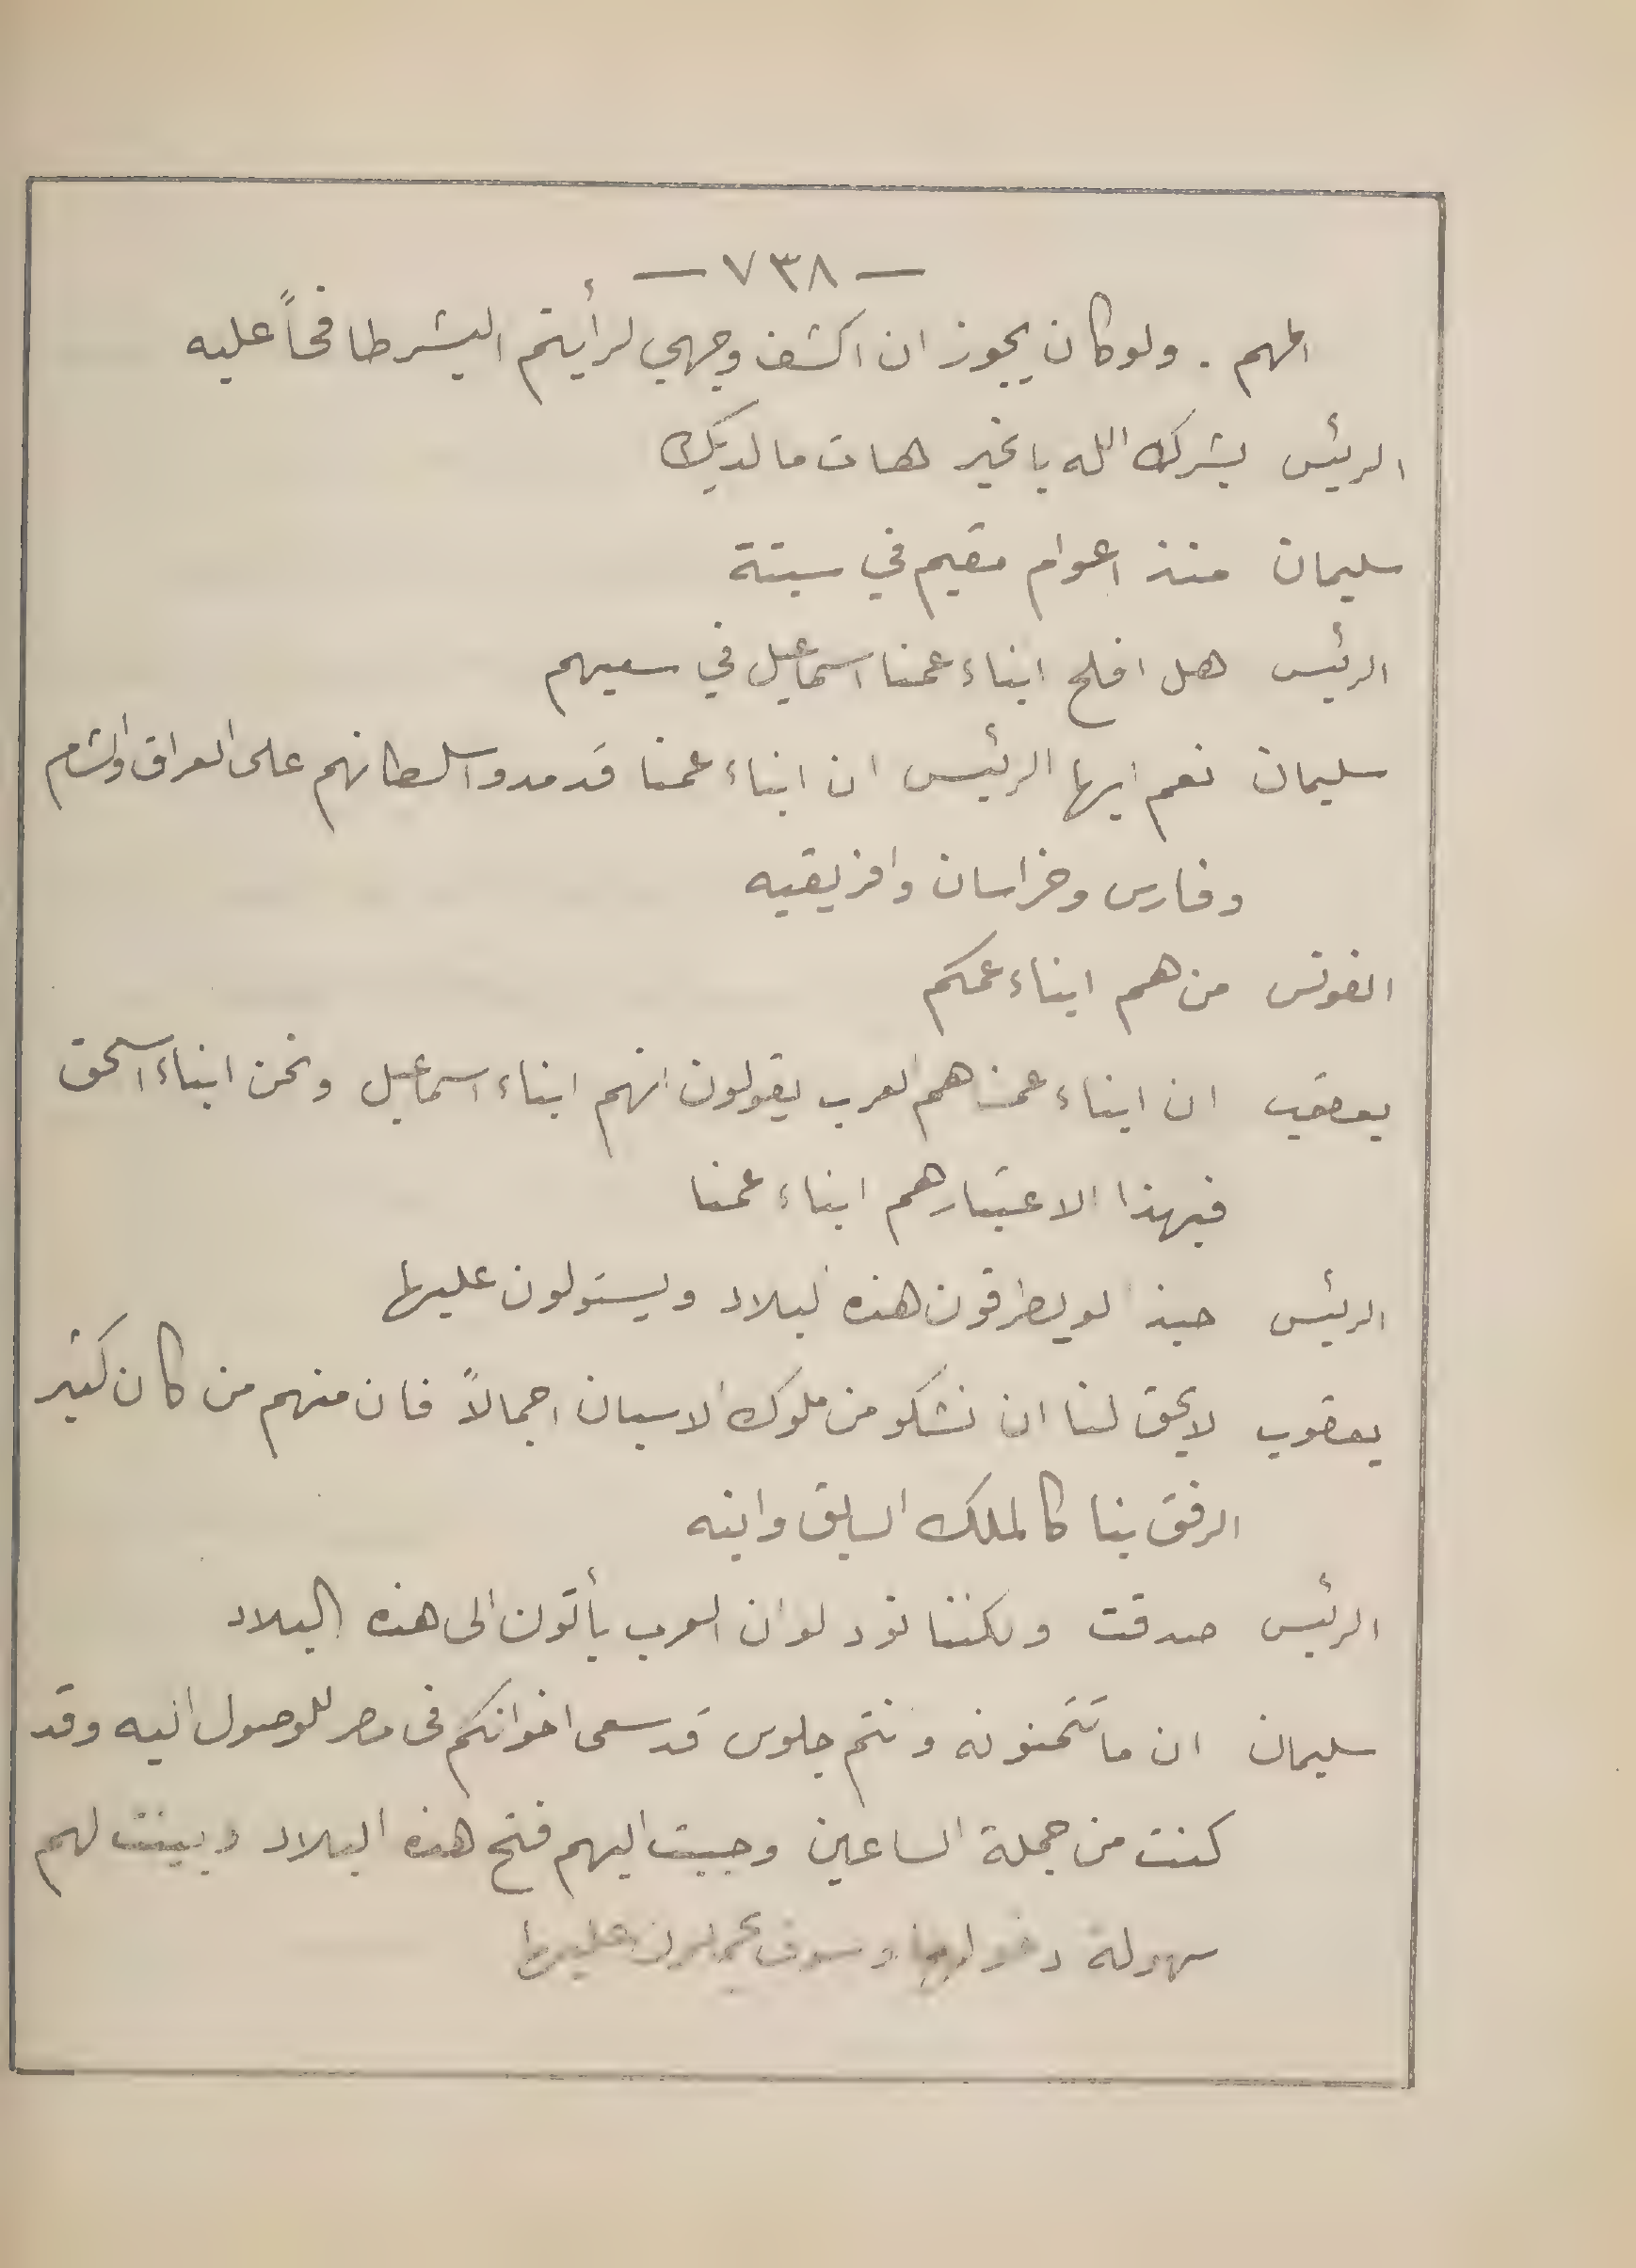 — ٧٣٨ —
المهم . ولو كان يجوز ان اكشف وجهي لرأيتم البشر طافحاً عليه
الرئيس بشرك الله بالخير هات ما لديك
سليمان منذ اعوام مقيم في سبتة
الرئيس هل افلح ابناء عمنا اسماعيل في سعيهم
سليمان نعم ايها الرئيس ان ابناء عمنا قد مدوا سلطانهم على العراق والشام
وفارس وخراسان وافريقيه
الفونس من هم ابناء عمكم
يعقوب ان ابناء عمنا هم العرب يقولون انهم ابناء اسماعيل ونحن ابناء اسحق
فبهذا الاعتبار هم ابناء عمنا
الرئيس حبذا لو يطرقون هذه البلاد ويستولون عليها
يعقوب لا يحق لنا ان نشكو من ملوك الاسبان اجمالاً فان منهم من كان كثير
الرفق بنا كالملك السابق وابنه
الرئيس صدقت ولكننا نود لو ان العرب يأتون الى هذه البلاد
سليمان ان ما تتمنونه وانتم جلوس قد سعى اخوانكم في مصر للوصول اليه وقد
كنت من جملة الساعين وحببت اليهم فتح هذه البلاد وبينت لهم
سهولة دخولها وسوف يحملون عليها